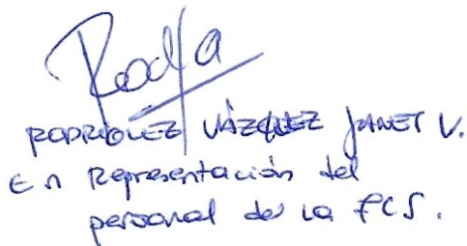 RODRÍGUEZ VÁZQUEZ JANET V.
En Representación del
personal de la FCS.